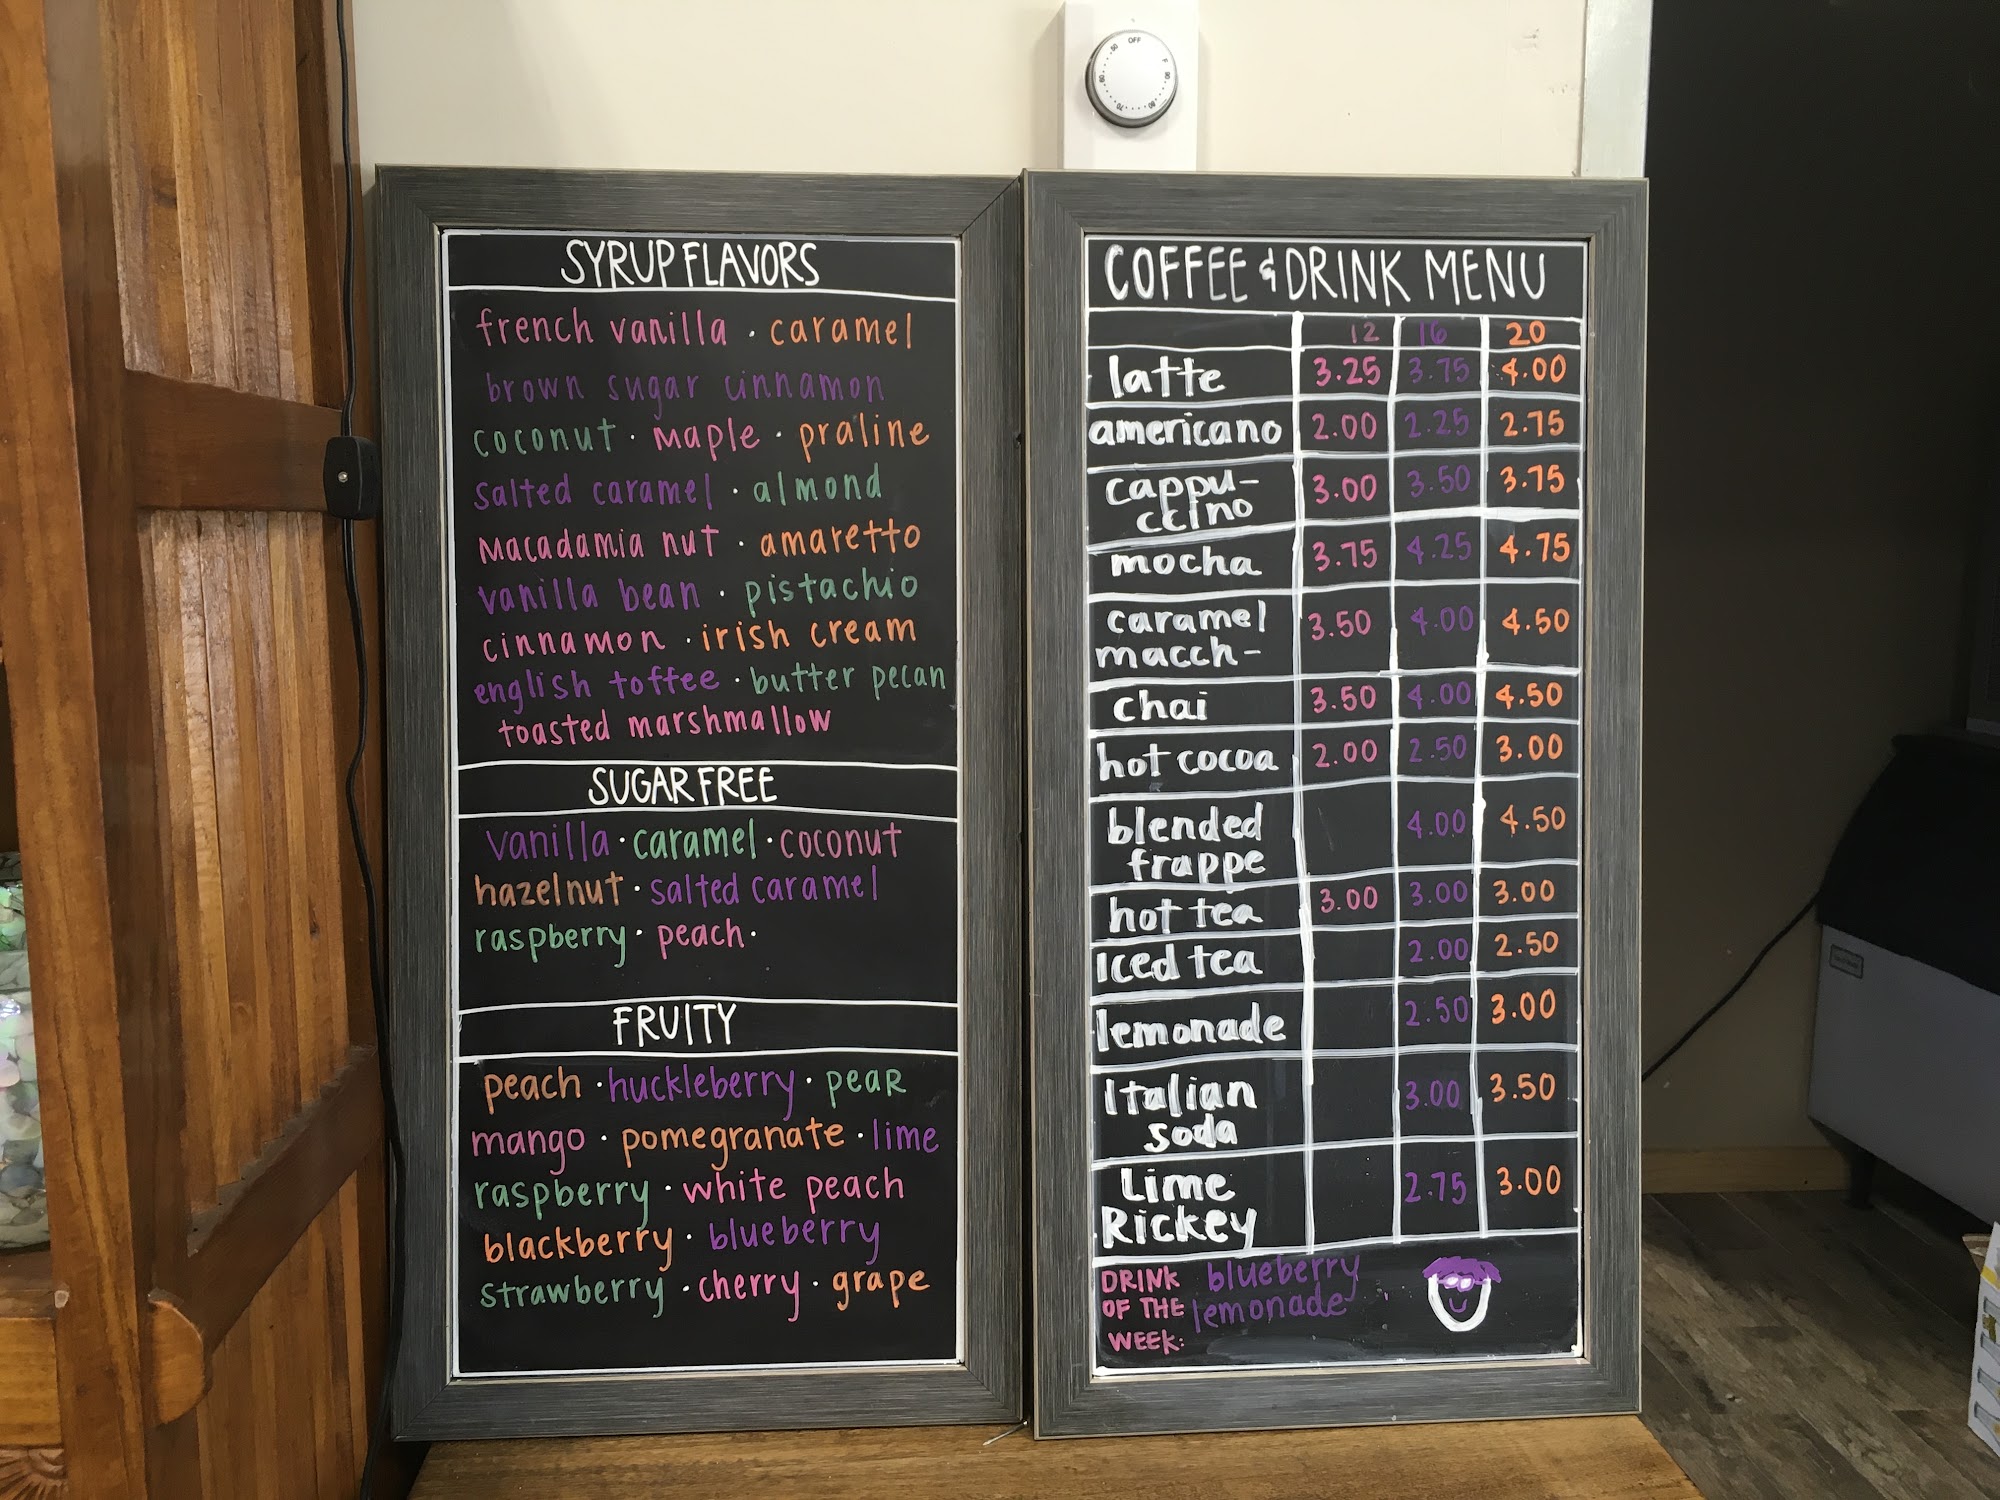 SYRUP FLAVORS
french vanilla · caramel
brown sugar cinnamon
coconut · maple · praline
salted caramel · almond
macadamia nut · amaretto
vanilla bean · pistachio
cinnamon · irish cream
english toffee · butter pecan
toasted marshmallow
SUGAR FREE
vanilla · caramel · coconut
hazelnut · salted caramel
raspberry · peach ·
FRUITY
peach · huckleberry · pear
mango · pomegranate · lime
raspberry · white peach
blackberry · blueberry
strawberry · cherry · grape
COFFEE & DRINK MENU
12 16 20
latte 3.25 3.75 4.00
americano 2.00 2.25 2.75
cappu-
ccino 3.00 3.50 3.75
mocha 3.75 4.25 4.75
caramel
macch- 3.50 4.00 4.50
chai 3.50 4.00 4.50
hot cocoa 2.00 2.50 3.00
blended
frappe 4.00 4.50
hot tea 3.00 3.00 3.00
Iced tea 2.00 2.50
lemonade 2.50 3.00
Italian
soda 3.00 3.50
Lime
Rickey 2.75 3.00
DRINK
OF THE
WEEK:
blueberry
lemonade
OFF
50
60
70
80
90
F